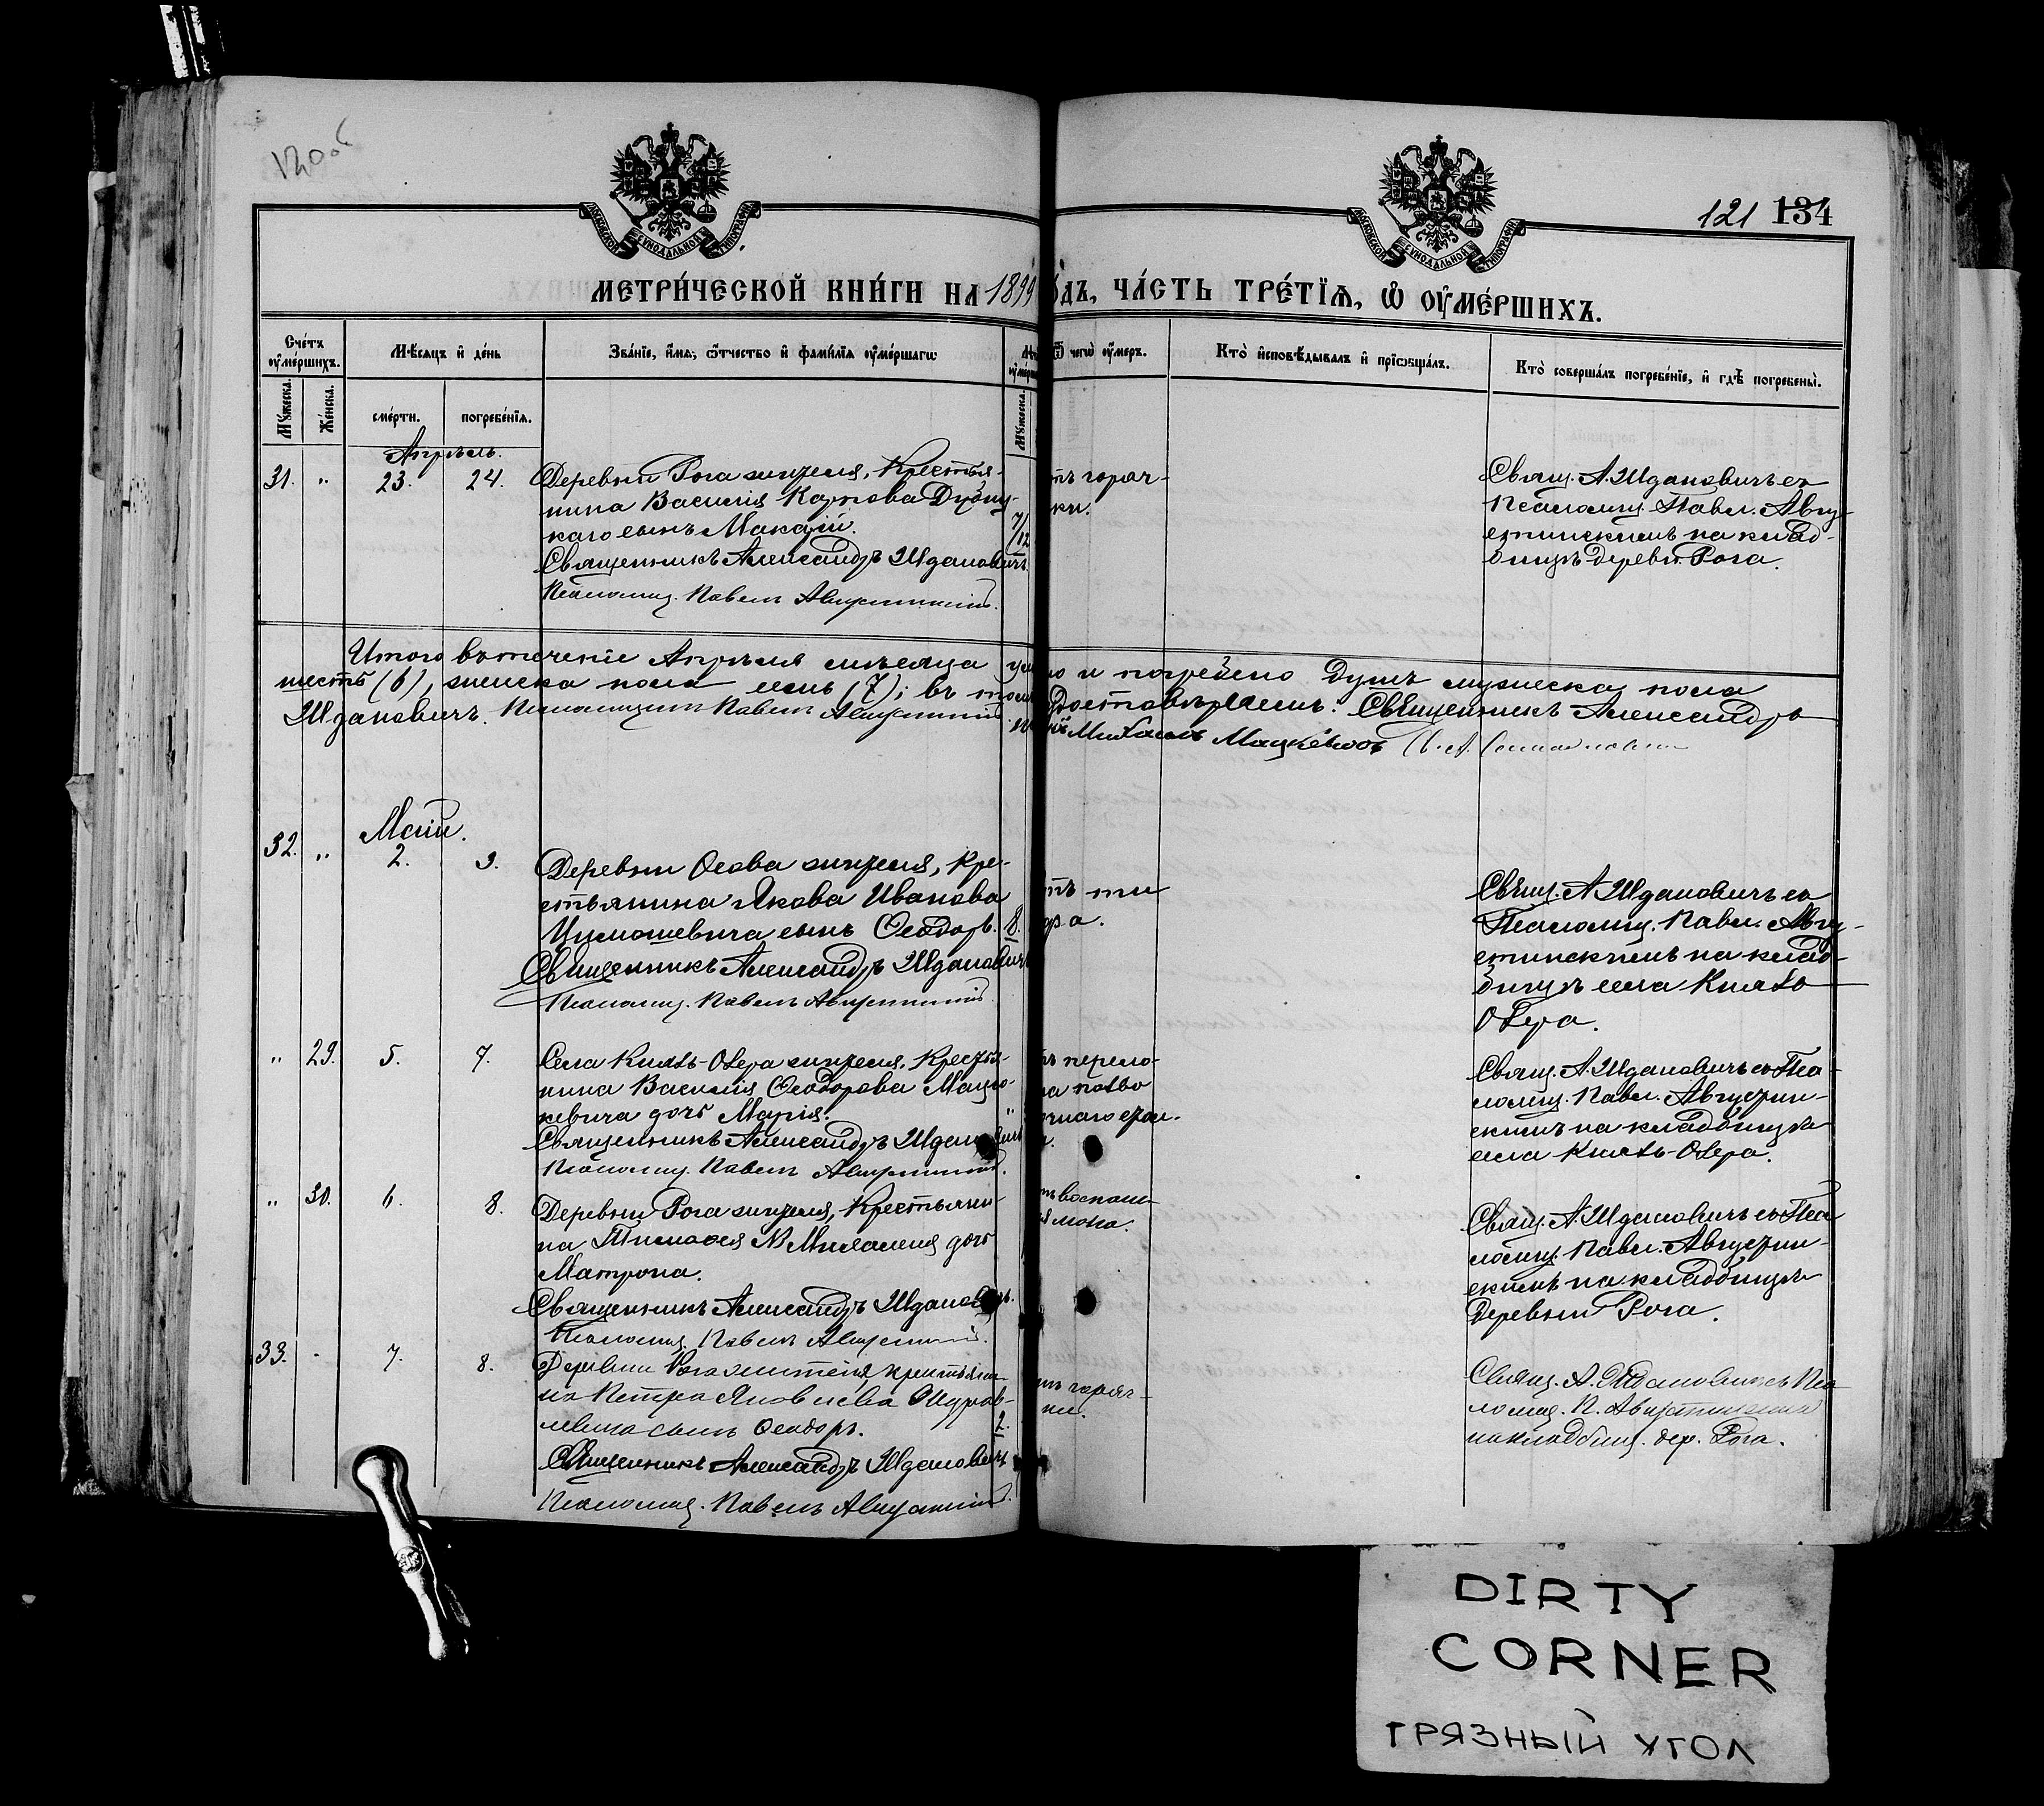 120об
121 134
МОСКОВСКОЙ СУНОДАЛЬНОЙ ТИПОГРАФІИ
МОСКОВСКОЙ СУНОДАЛЬНОЙ ТИПОГРАФІИ
МЕТРИ́ЧЕСКОЙ КНИ́ГИ НА 1899 ОДЪ, ЧА́СТЬ ТРЕ́ТІѦ, Ѡ ОУМЕ́РШИХЪ.
Сче́тъ оуме́ршихъ.
Мꙋжеска.
Же́нска.
Мѣсѧцъ и де́нь
сме́рти.
погребе́нїѧ.
Зва́нїе, и́мѧ, ѻ́тчество и фами́лїѧ оуме́ршагѡ
Мꙋжеска.
Ѿ чегѡ̀ оу́меръ.
Кто̀ исповѣ́дывалъ и прїѡбща́лъ.
Кто̀ соверша́лъ погребе́нїе, и гдѣ̀ погребены̀.
Апрѣль.
31. „ 23. 24. Деревни Рога жителя, крестья-
нина Василія Карпова Дубиц-
каго сынъ Макарій.
7/12
Священникъ Александръ Ждановичъ.
Псаломщ. Павелъ Августинскій.
тъ горяч-
ки.
Свящ. А. Ждановичъ съ
Псаломщ. Павл. Авгу-
стинскимъ на клад-
бищѣ деревн. Рога.
Итого въ теченіе Апрѣля мѣсяца умо и погребено душъ мужеска пола
шесть (6), женска пола семь (7); въ томъ удостовѣряемъ: Священникъ Александръ
Ждановичъ. Псаломщикъ Павелъ Августинскій. Михаилъ Мацкевичъ
Май.
32. „ 2. 3. Деревни Осова жителя, кре-
стьянина Якова Иванова
Цимошевича сынъ Ѳеодоръ. 8.
Священникъ Александръ Ждановичъ
Псаломщ. Павелъ Августинскій.
тъ ти
фа.
Свящ. А. Ждановичъ съ
Псаломщ. Павл. Авгу-
стинскимъ на клад-
бищѣ села Князь
Озера.
„ 29. 5. 7. Села Князь-Озера жителя, крестья-
нина Василія Ѳеодорова Мацке-
кевича дочь Марія.
Священникъ Александръ Ждановичъ
Псаломщ. Павелъ Августинскій.
тъ перело-
ма позво
ночнаго стол-
ба.
Свящ. А. Ждановичъ съ Пса-
ломщ. Павл. Августин-
скимъ на кладбищѣ
села Князь-Озера.
„ 30. 6. 8. Деревни Рога жителя, крестьяни-
на Тимоѳея Михалени дочь
Матрона.
Священникъ Александръ Ждановичъ.
Псаломщ. Павелъ Августинскій.
тъ воспал-
Свящ. А. Ждановичъ съ Пса
ломщ. Павл. Августин-
скимъ на кладбищѣ
деревни Рога.
33. „ 7. 8. Деревни Рога жителя, крестьяни-
на Петра Яковлева Журав-
левича сынъ Ѳеодоръ. 2.
Священникъ Александръ Ждановичъ
Псаломщ. Павелъ Августинскій.
тъ горяч-
ки.
Свящ. А. Ждановичъ съ Пса
ломщ. П. Августинскимъ
на кладбищ. дер. Рога.
DIRTY
CORNER
ГРЯЗНЫЙ УГОЛ